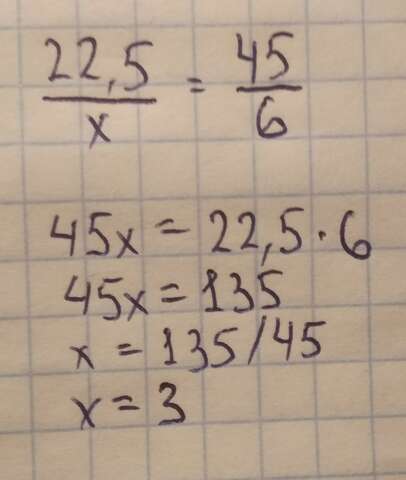 22,5/x = 45/6
45x = 22,5 · 6
45x = 135
x = 135/45
x = 3